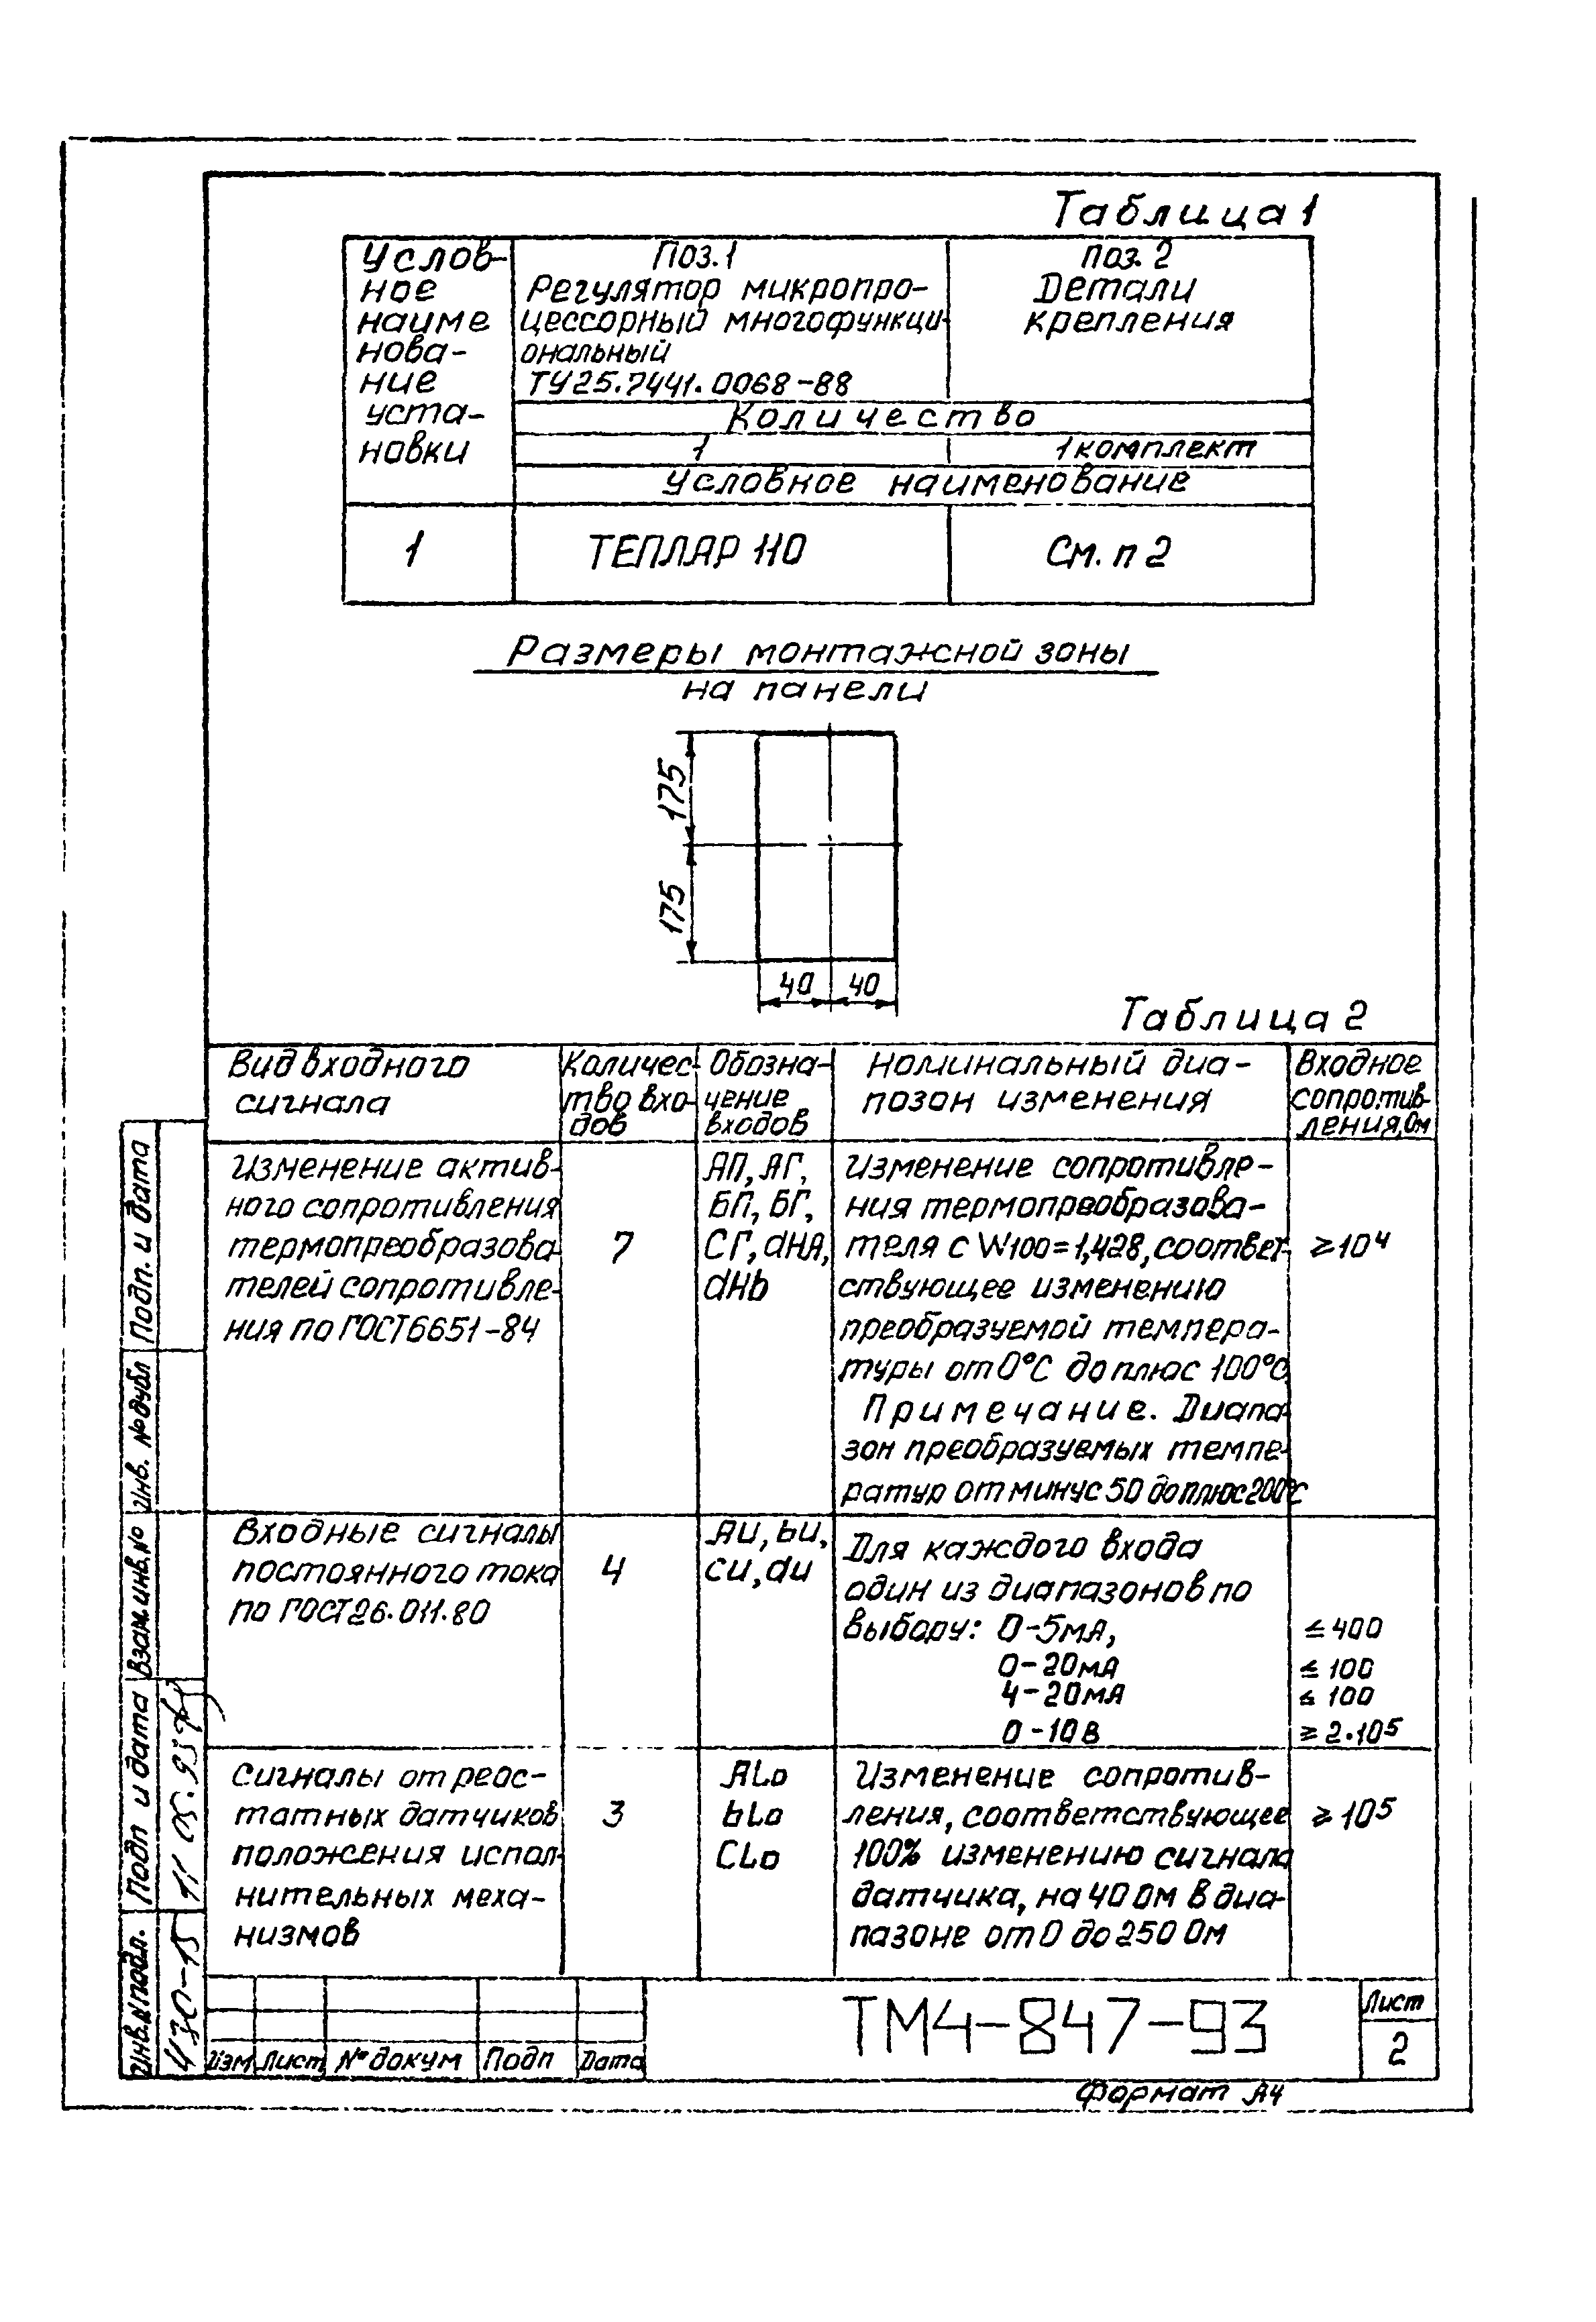 Таблица 1
Услов-
ное
наиме
нова-
ние
уста-
новки
Поз. 1
Регулятор микропро-
цессорный многофункци-
ональный
ТУ25.7441.0068-88
поз. 2
Детали
крепления
Количество
1
1 комплект
Условное наименование
1
ТЕПЛАР 110
См. п 2
Размеры монтажной зоны
на панели
175
175
40
40
Таблица 2
Вид входного
сигнала
Количес-
тво вхо-
дов
Обозна-
чение
входов
Номинальный диа-
позон изменения
Входное
сопротив-
ления, Ом
Изменение актив-
ного сопротивления
термопреобразова-
телей сопротивле-
ния по ГОСТ 6651-84
7
АП, АГ,
БП, БГ,
СГ, dНА,
dНb
Изменение сопротивле-
ния термопреобразова-
теля с W100=1,428, соответ-
ствующее изменению
преобразуемой темпера-
туры от 0°С до плюс 100°С
Примечание. Диапа-
зон преобразуемых темпе-
ратур от минус 50 до плюс 200°С
≥10⁴
Входные сигналы
постоянного тока
по ГОСТ 26.011.80
4
Аи, bи,
си, dи
Для каждого входа
один из диапазонов по
выбору: 0-5мА,
0-20мА
4-20мА
0-10В
≤ 400
≤ 100
≤ 100
≥ 2·10⁵
Сигналы от реос-
татных датчиков
положения испол-
нительных меха-
низмов
3
ALo
bLo
CLo
Изменение сопротив-
ления, соответствующее
100% изменению сигнала
датчика, на 40 Ом в диа-
пазоне от 0 до 250 Ом
≥ 10⁵
Подп. и дата
Инв. № дубл
Взам. инв. №
Подп и дата
11 05.93г
Инв. № подл.
430-15
Изм Лист № докум Подп Дата
ТМ4-847-93
Лист
2
Формат А4